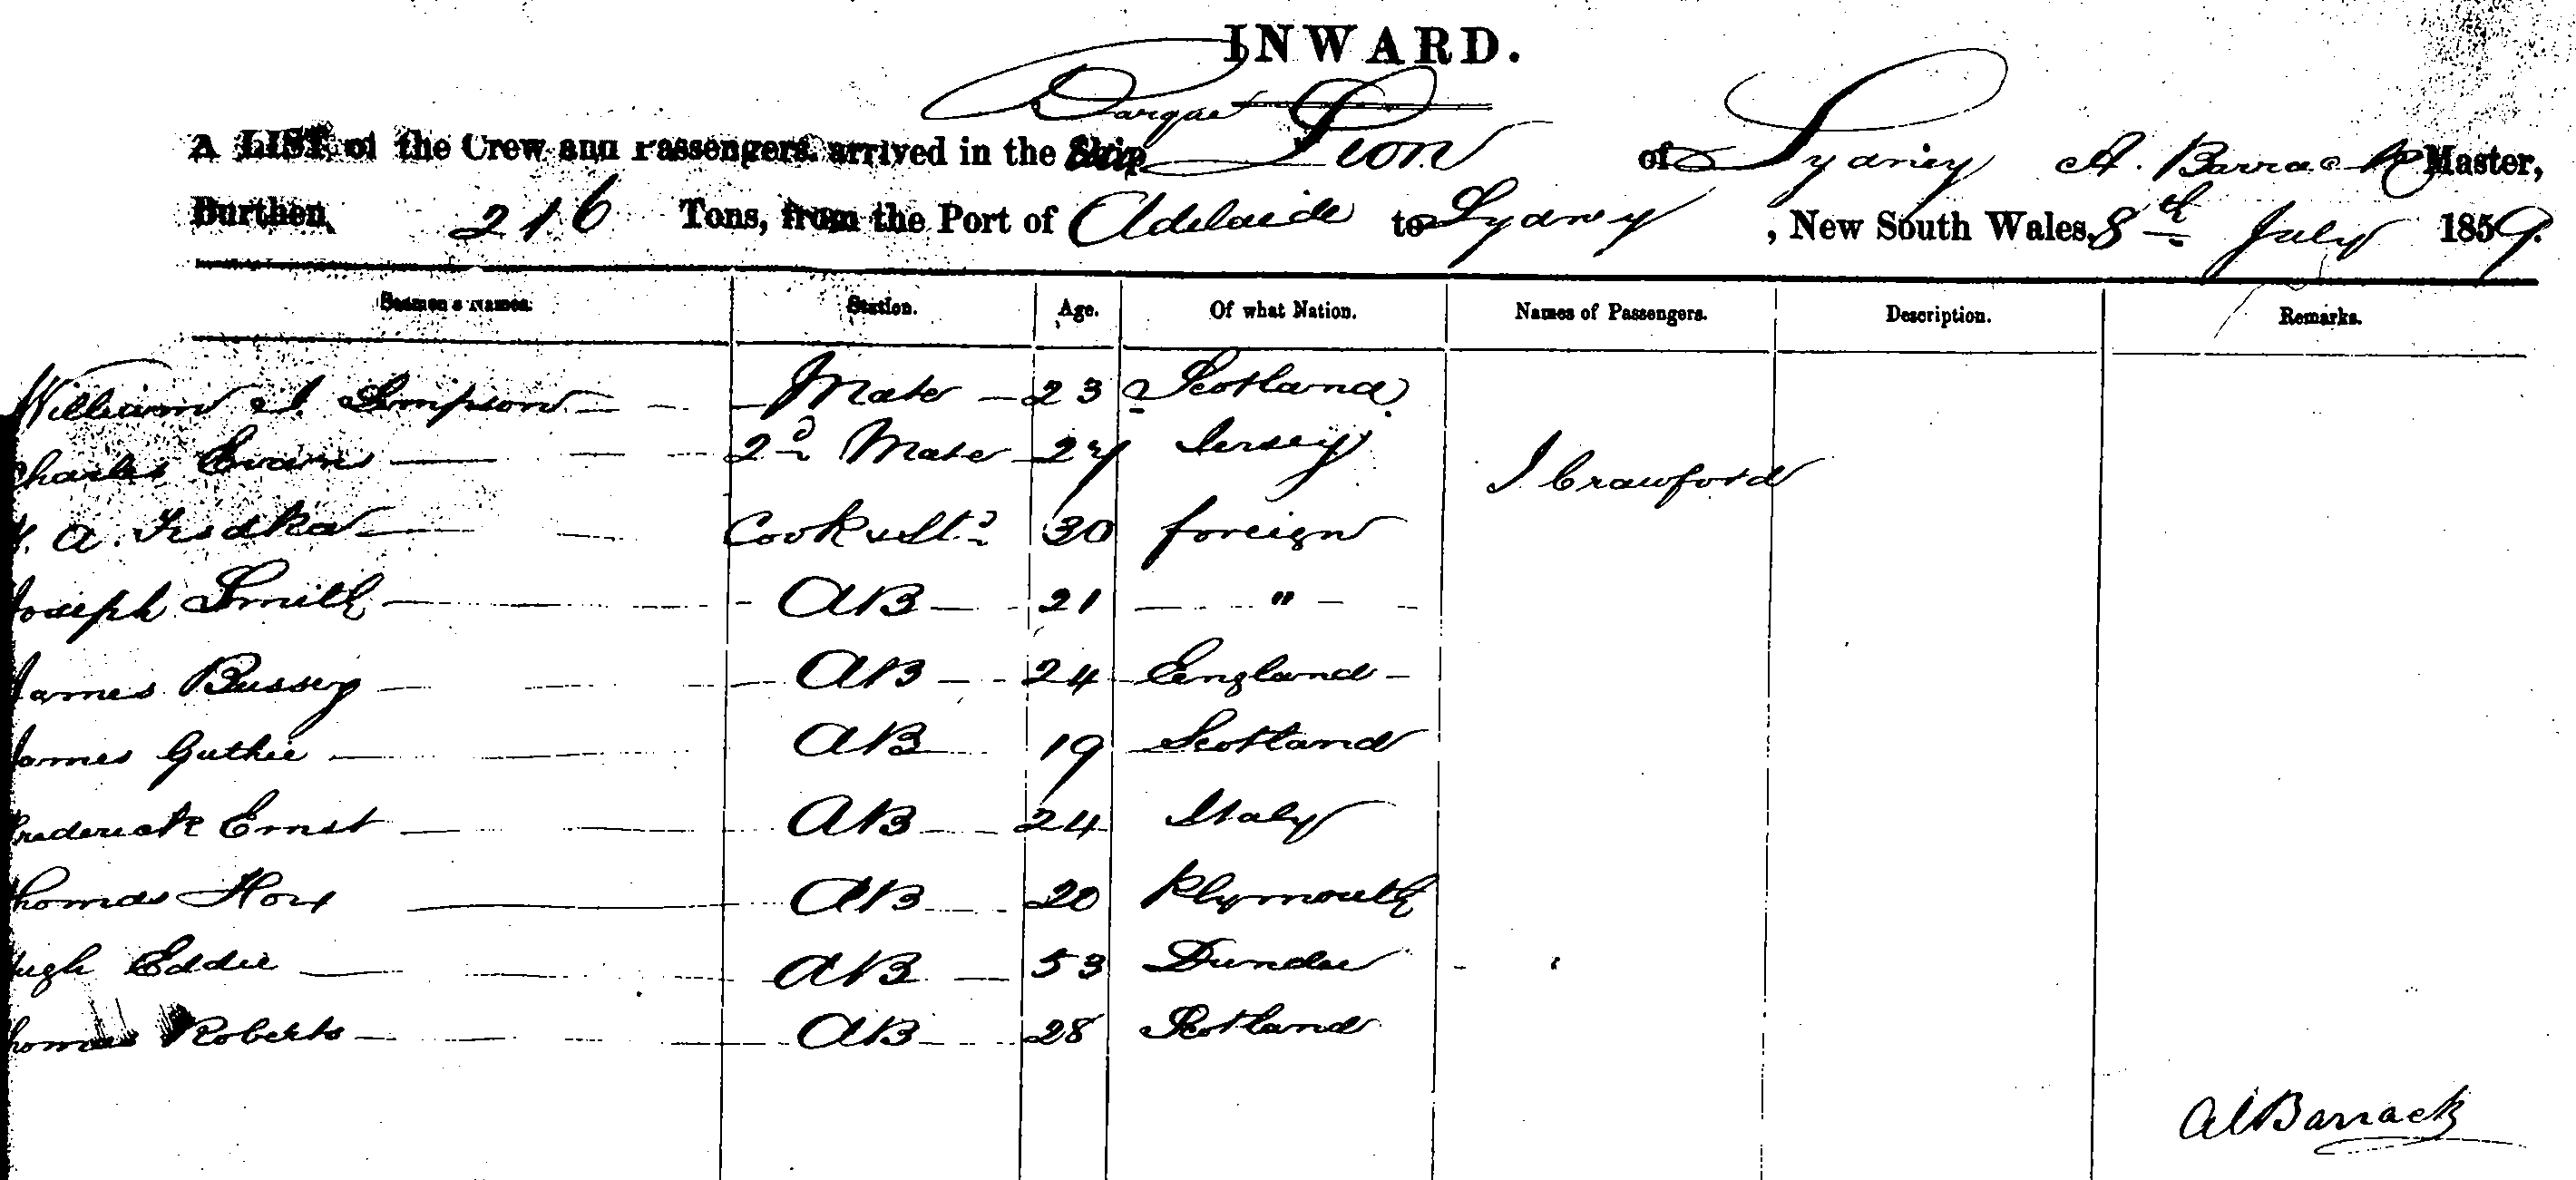 INWARD.
Barque
A LIST of the Crew and Passengers arrived in the Ship Leon of Sydney A. Barrack Master,
Burthen 216 Tons, from the Port of Adelaide to Sydney, New South Wales, 8th July 1859.
Seamen's Names. Station. Age. Of what Nation. Names of Passengers. Description. Remarks.
William J. Simpson Mate 23 Scotland
Charles Evans 2d Mate 27 Jersey J Crawford
A. Cook & Std 30 foreign
Joseph Smith AB 21 "
James Bussey AB 24 England
James Guthie AB 19 Scotland
Frederick Ernst AB 24 Italy
Thomas AB 20 Plymouth
Hugh Eddie AB 53 Dundee
Thomas Roberts AB 28 Scotland
A Barrack